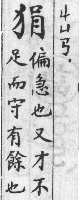 狷
ㄐㄩㄢ
偏急也又才不
足而守有餘也